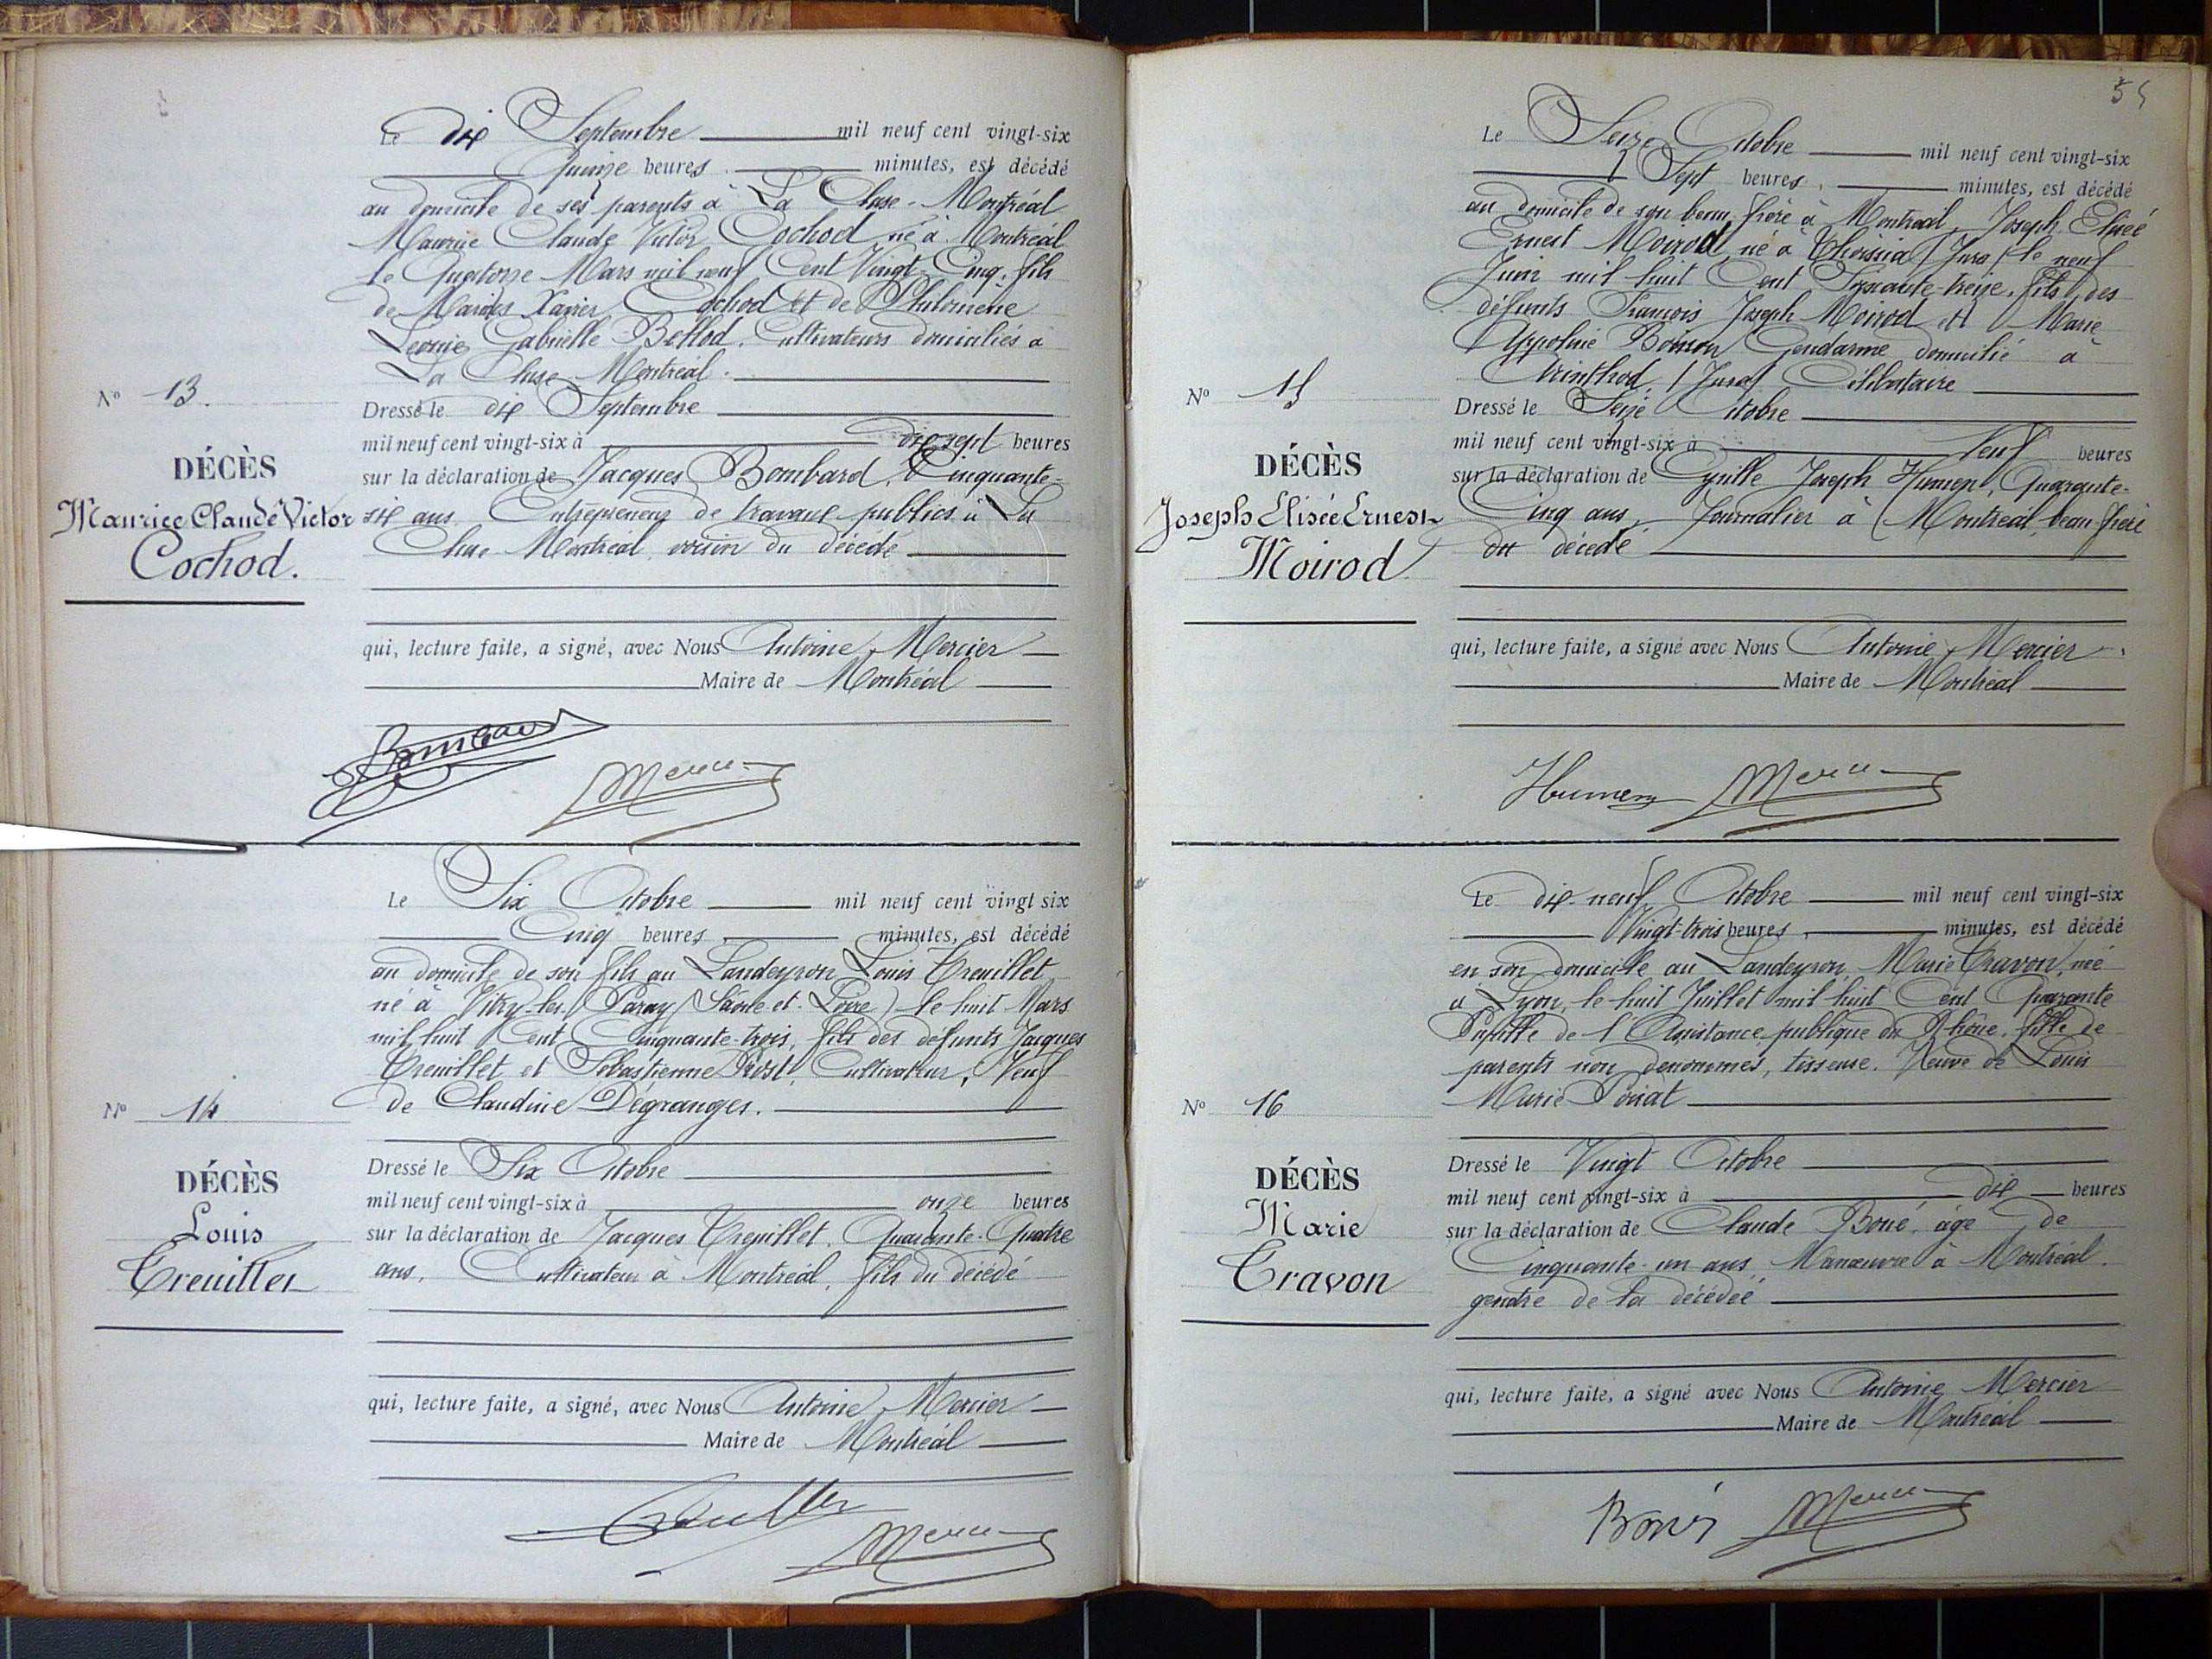 Le dix Septembre mil neuf cent vingt-six
Quinze heures minutes, est décédé
au domicile de ses parents à La Cluse-Montréal
Maurice Claude Victor Cochod né à Montréal
le Quatorze Mars mil neuf Cent Vingt-Cinq, fils
de Xavier Cochod et de Philomène
Léonie Gabrielle Bellod, Cultivateurs domiciliés à
La Cluse-Montréal.
Nº 13.
Dressé le dix Septembre
mil neuf cent vingt-six à dix sept heures
DÉCÈS
sur la déclaration de Jacques Bombard, Cinquante-
Maurice Claude Victor
six ans Entrepreneur de travaux publics à La
Cochod.
Cluse-Montréal, voisin du décédé
qui, lecture faite, a signé, avec Nous Antoine Mercier
Maire de Montréal
Bombard
Mercier
Le Six Octobre mil neuf cent vingt six
Cinq heures minutes, est décédé
au domicile de son fils au Landeyron Louis Treuillet
né à Vitry-les-Paray (Saône-et-Loire) le huit Mars
mil huit Cent Cinquante-trois, fils des défunts Jacques
Treuillet et Sébastienne Prost, Cultivateur, Veuf
de Claudine Dégranges.
Nº 14
Dressé le Six Octobre
DÉCÈS
mil neuf cent vingt-six à onze heures
Louis
sur la déclaration de Jacques Treuillet, Quarante-Quatre
Treuillet
ans, Cultivateur à Montréal, fils du décédé
qui, lecture faite, a signé, avec Nous Antoine Mercier
Maire de Montréal
Treuillet
Mercier
Le Seize Octobre mil neuf cent vingt-six
Sept heures, minutes, est décédé
au domicile de son beau-frère à Montréal, Joseph Elisée
Ernest Moirod né à Thoissia (Jura) le neuf
Juin mil huit Cent Soixante-treize, fils des
défunts François Joseph Moirod et Marie
Gendarme domicilié à
Arinthod (Jura) Célibataire
Nº 15
Dressé le Seize Octobre
mil neuf cent vingt-six à Neuf heures
DÉCÈS
sur la déclaration de Cyrille Joseph Humery, Quarante-
Joseph Elisée Ernest
Cinq ans, Journalier à Montréal, beau-frère
Moirod
du décédé
qui, lecture faite, a signé avec Nous Antoine Mercier
Maire de Montréal
Humery
Mercier
Le dix-neuf Octobre mil neuf cent vingt-six
Vingt-trois heures, minutes, est décédé
en son domicile au Landeyron, Marie Travon, née
à Lyon, le huit Juillet mil huit Cent Quarante
Pupille de l'Assistance publique du Rhône, fille de
parents non dénommés, tisseuse. Veuve de Louis
Marie
Nº 16
Dressé le Vingt Octobre
DÉCÈS
mil neuf cent vingt-six à dix heures
Marie
sur la déclaration de Claude Boné, âgé de
Travon
Cinquante-un ans Manœuvre à Montréal.
gendre de la décédée
qui, lecture faite, a signé avec Nous Antoine Mercier
Maire de Montréal
Boné
Mercier